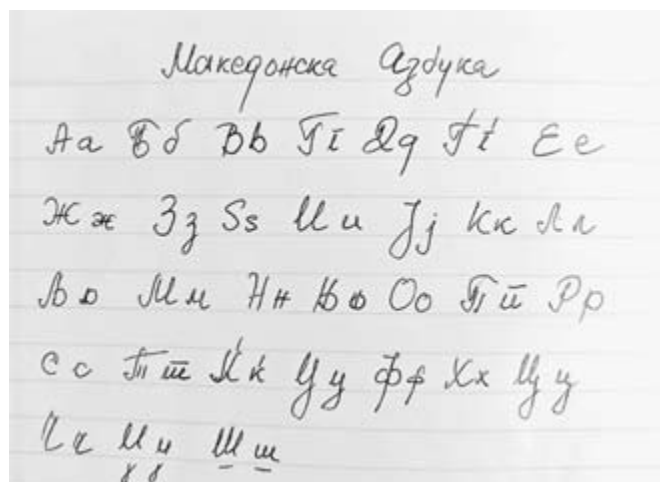 Македонска Азбука
Аа Бб Вв Гг Дд Ѓѓ Ее
Жж Зз Ѕѕ Ии Јј Кк Лл
Љљ Мм Нн Њњ Оо Пп Рр
Сс Тт Ќќ Уу Фф Хх Цц
Чч Џџ Шш